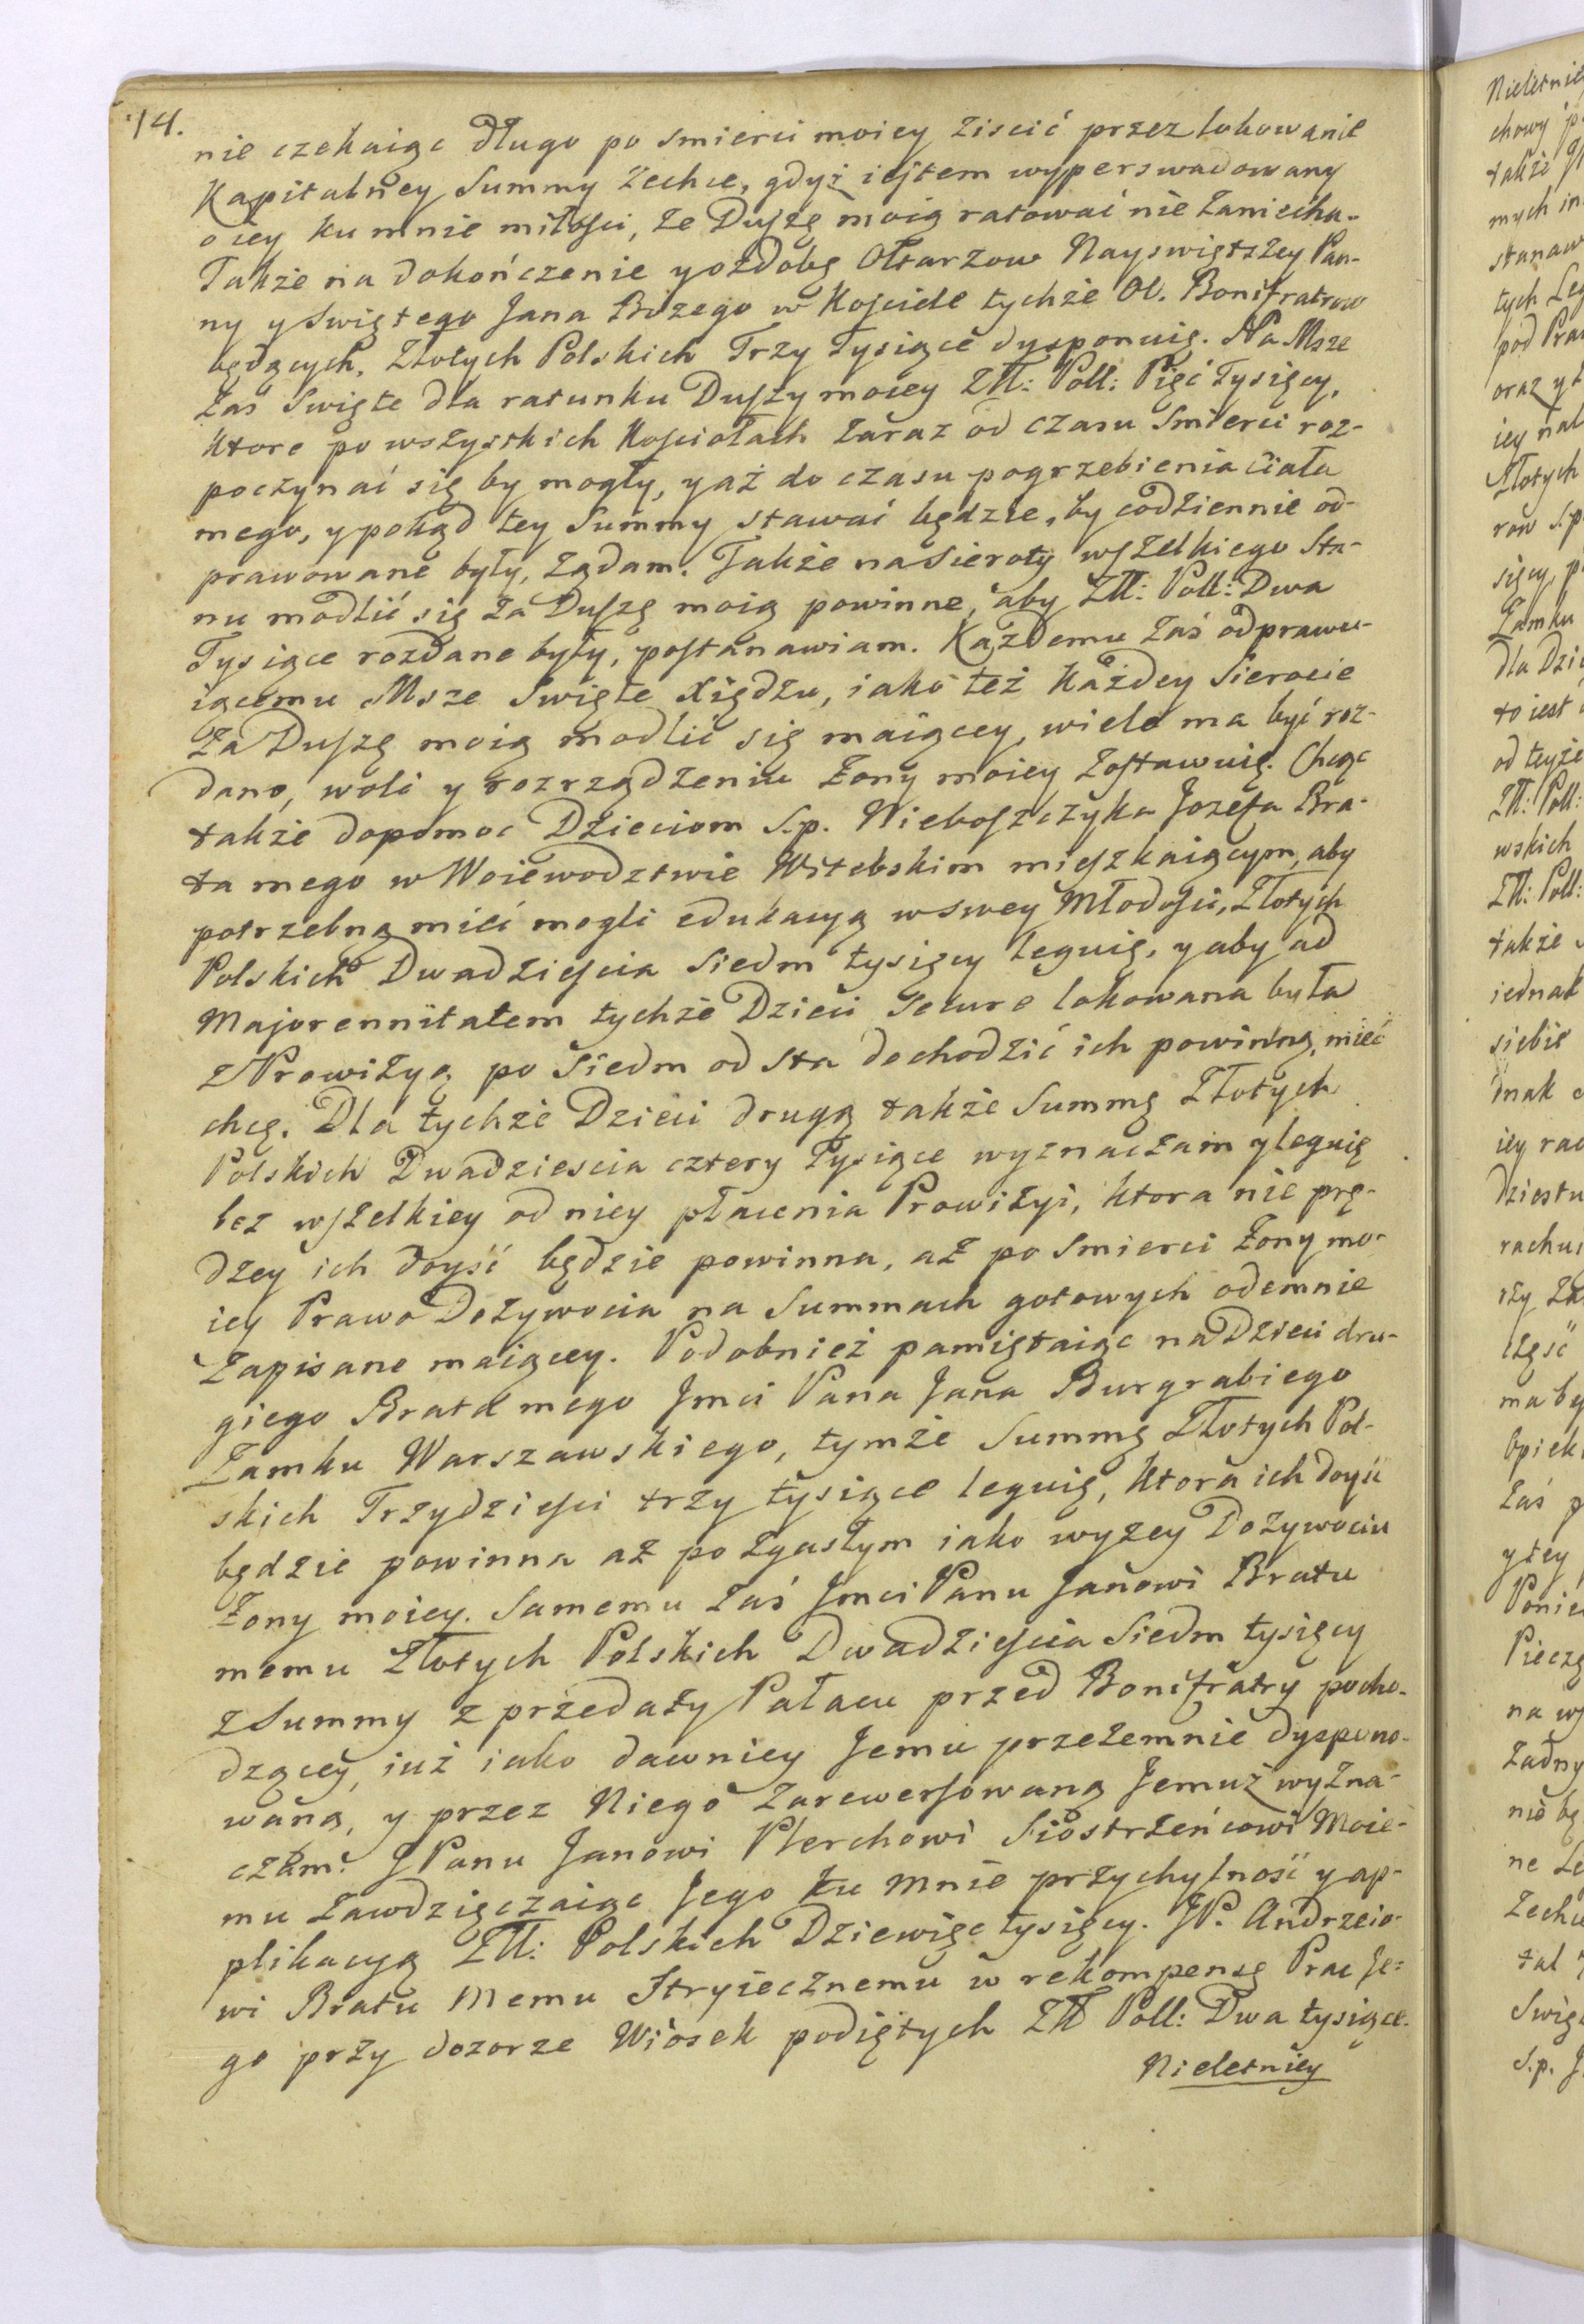 14.
nie czekaiąc długo po smierci moiey ziscić przez lokowanie
Kapitalney Summy zechce, gdyż iestem wyperswadowany
o iey ku mnie miłości, że Duszę moią ratować nie zaniecha.
Także na dokończenie y ozdobę Ołtarzow Nayswiętszey Pan-
ny y Swiętego Jana Bożego w Kościele tychże OO. Bonifratrow
będących, Złotych Polskich Trzy Tysiące dysponuię. Na Msze
zaś Swięte dla ratunku Duszy moiey Złł: Poll: Pięć Tysięcy,
ktore po wszystkich Kościołach zaraz od czasu Smierci roz-
poczynać się by mogły, y aż do czasu pogrzebienia ciała
mego, y pokąd tey Summy stawać będzie, by codziennie od-
prawowane były, żądam. Także na Sieroty wszelkiego Sta-
nu modlić się za Duszę moią powinne, aby Złł: Poll: Dwa
Tysiące rozdane były, postanawiam. Każdemu zaś odprawu-
iącemu Msze Swięte Xiędzu, iako też każdey Sierocie
za Duszę moią modlić się maiącey, wiele ma być roz-
dano, woli y rozrządzeniu Żony moiey zostawuię. Chcąc
także dopomoc Dzieciom S.p. Nieboszczyka Jozefa Bra-
ta mego w Woiewodztwie Witebskim mieszkaiącym, aby
potrzebną mieć mogli edukacyą w swey Młodości, Złotych
Polskich Dwadzieścia Siedm tysięcy leguię, y aby ad
Majorennitatem tychże Dzieci secure lokowana była
z Prowizyą po Siedm od sta dochodzić ich powinną, mieć
chcę. Dla tychże Dzieci drugą także Summę Złotych
Polskich Dwadziescia cztery Tysiące wyznaczam y leguię
bez wszelkiey od niey płacenia Prowizyi, ktora nie prę-
dzey ich doyść będzie powinna, aż po Smierci Żony mo-
iey Prawo Dożywocia na Summach gotowych odemnie
zapisane maiącey. Podobnież pamiętaiąc na Dzieci dru-
giego Brata mego Jmci Pana Jana Burgrabiego
Zamku Warszawskiego, tymże Summę Złotych Pol-
skich Trzydzieści trzy tysiące leguię, ktora ich doyść
będzie powinna aż po zgasłym iako wyżey Dożywociu
Żony moiey. Samemu zaś Jmci Panu Janowi Bratu
memu Złotych Polskich Dwadzieścia Siedm tysięcy
z Summy z przedaży Pałacu przed Bonifratry pocho-
dzącey, iuż iako dawniey Jemu przezemnie dyspono-
waną, y przez Niego zarewersowaną Jemuż wyzna-
czam. J Panu Janowi Plerchowi Siostrzeńcowi Moie-
mu zawdzięczaiąc Jego ku mnie przychylność y ap-
plikacyą Złł: Polskich Dziewięc tysięcy. JP. Andrzeio-
wi Bratu Memu Stryiecznemu w rekompensę Prac Je-
go przy dozorze Wiosek podiętych Złł Poll: Dwa tysiące.
Nieletniey